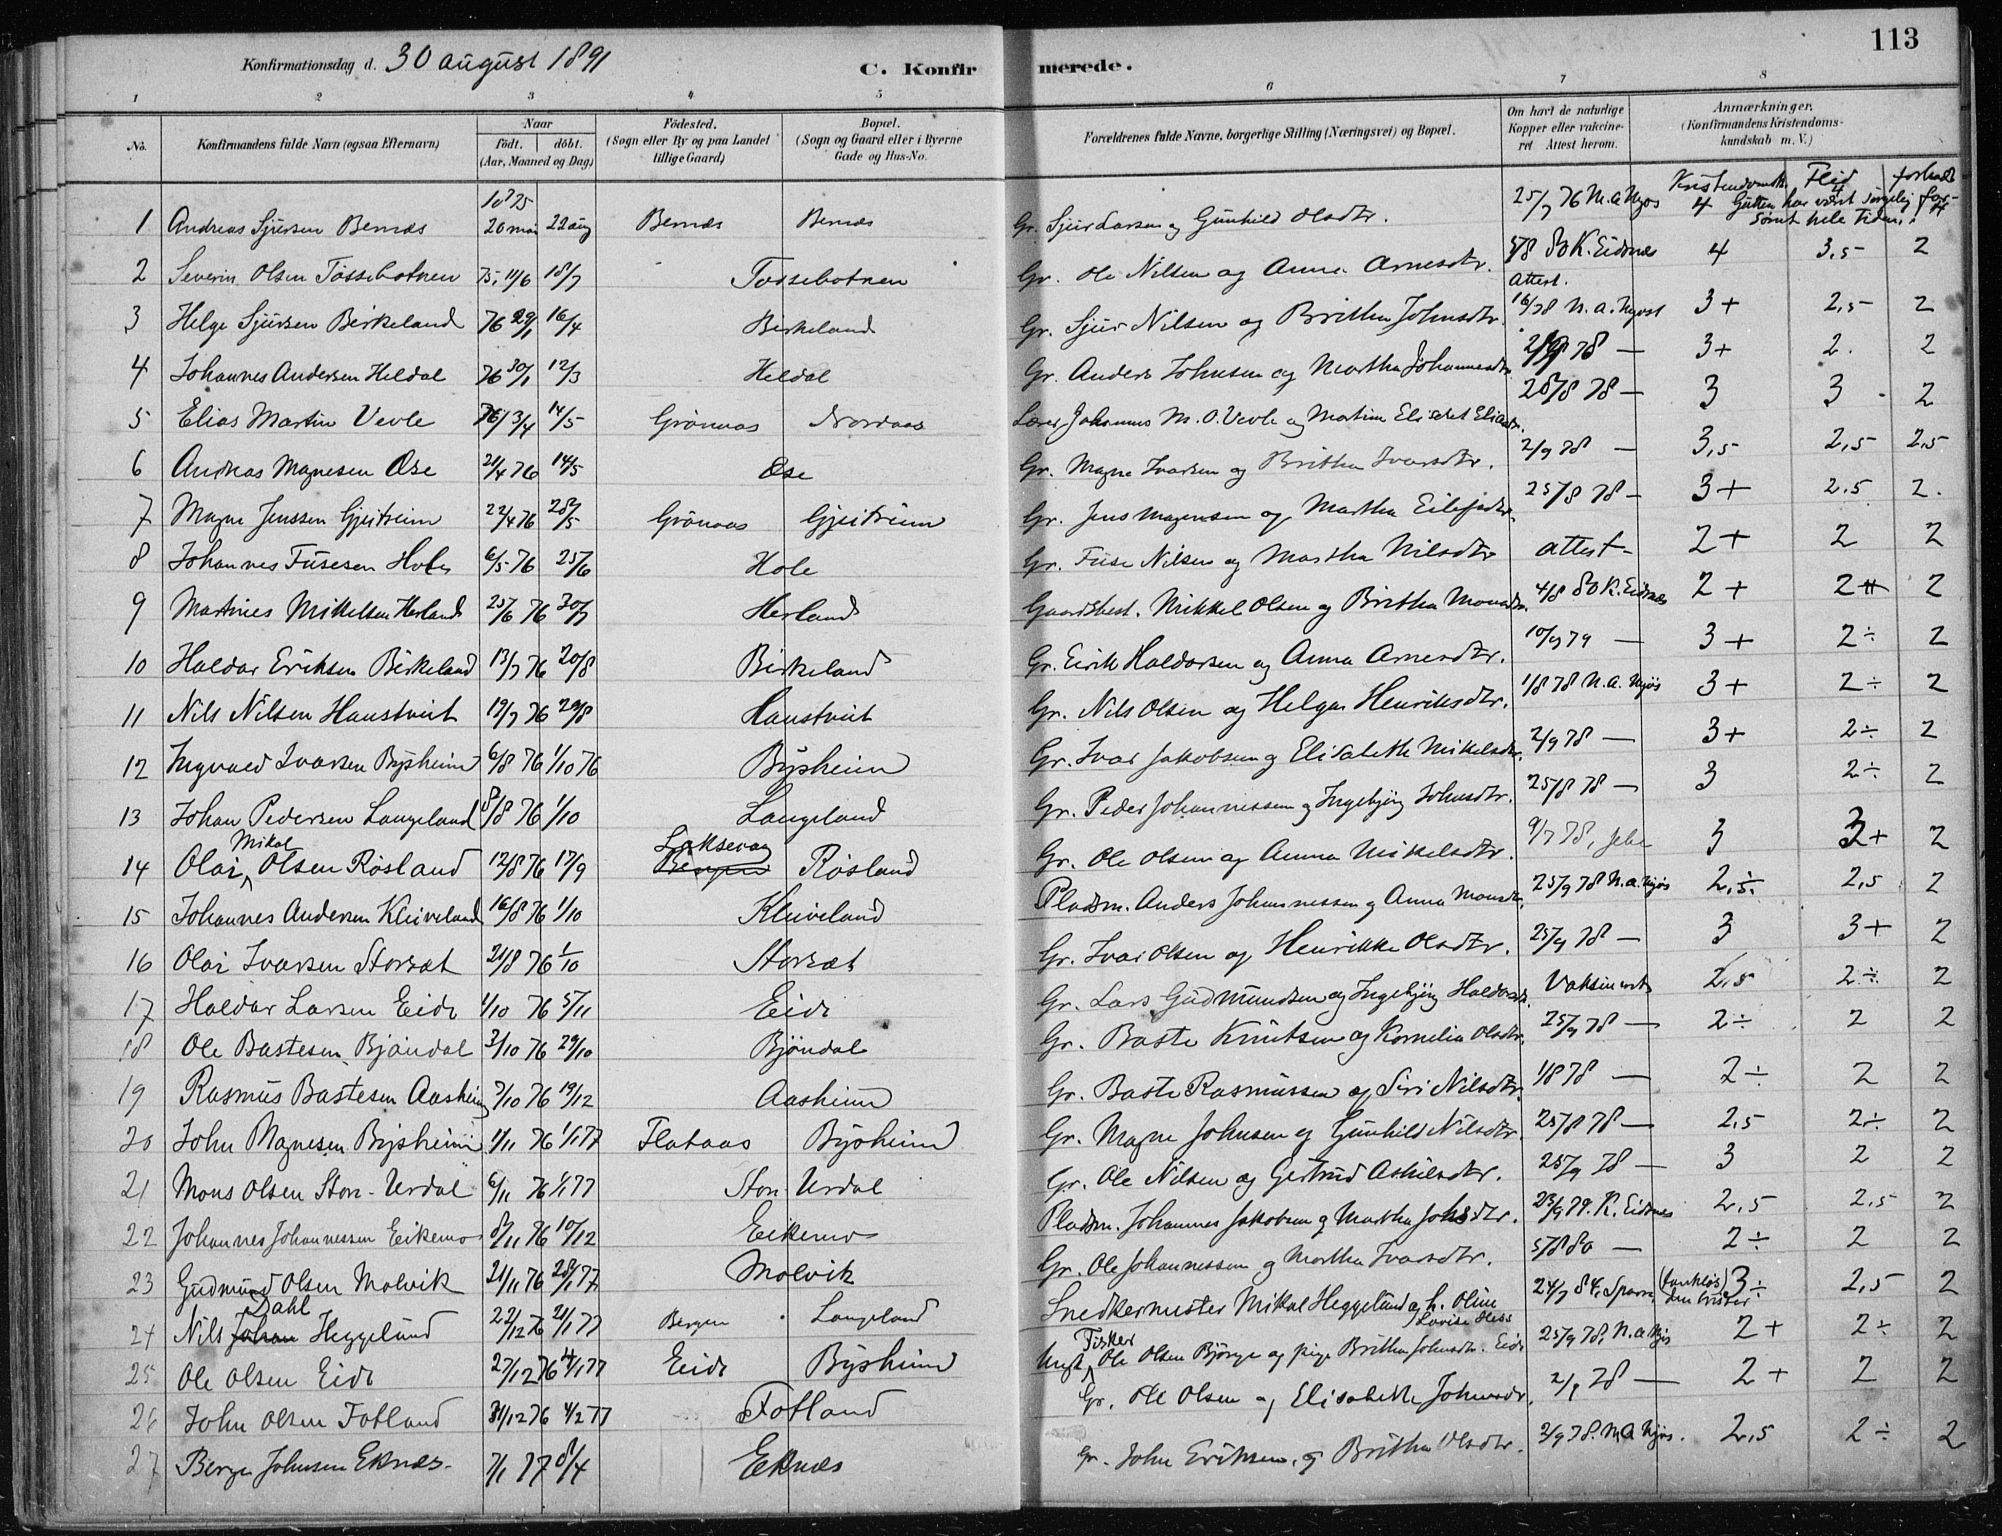 113
Konfirmationsdag d. 30 august 1891
C. Konfirmerede.
1 2 3 4 5 6 7 8
No. Konfirmandens fulde Navn (ogsaa Efternavn) Naar født. døbt. (Aar, Maaned og Dag) Fødested. (Sogn eller By og paa Landet tillige Gaard) Bopæl. (Sogn og Gaard eller i Byerne Gade og Hus-No. Forældrenes fulde Navne, borgerlige Stilling (Næringsvei) og Bopæl. Om havt de naturlige Kopper eller vakcineret Attest herom. Anmærkninger. (Konfirmandens Kristendomskundskab m. V.)
Flid
1 Andreas Sjursen Bernæs 20 mai 22 aug Bernæs Bernæs Gr. Sjur Larsen og Gunhild Olsdtr. 25/7 76 N.a. Njøs 4 Gutten har været sørgelig forsømt hele Tiden. 4
2 Severin Olsen Tøssebotnen 75, 11/6 18/7 Tøssebotnen Gr. Ole Nilsen og Anna Arnesdtr. 5/8 80 K. Eidsnæs attest. 4 3,5 2
3 Helge Sjursen Birkeland 76 29/1 16/4 Birkeland Gr. Sjur Nilsen og Britha Johnsdtr. 3+ 2,5 2
4 Johannes Andersen Heldal 76 30/1 12/3 Heldal Gr. Anders Johnsen og Martha Johannesdtr 78 — 3+ 2. 2
5 Elias Martin Vevle 76/ 3/4 14/5 Grønaas Nordaas Lærer Johannes M. O. Vevle og Martine Elisabet Eliasdtr. 28/8 78 — 3 3 2
6 Andreas Magnesen Øse 21/4 76 14/5 Øse Gr. Magne Ivarsen og Britha Ivarsdtr. 2/9 78 — 3,5 2,5 2,5
7 Magne Jenssen Gjeitreim 22/4 76 28/5 Grønaas Gjeitreim Gr. Jens Magnesen og Martha Eilefsdtr. 25/8 78 — 3+ 2.5 2.
8 Johannes Fusesen Hole 6/5 76 25/6 Hole Gr. Fuse Nilsen og Martha Nilsdtr attest 2+ 2 2
9 Martines Mikkelsen Herland 25/6 76 30/7 Herland Gaardsbest. Mikkel Olsen og Britha Monsdtr. 4/8 80 K. Eidsnæs 2+ 2+ 2
10 Haldor Eriksen Birkeland 13/7 76 20/8 Birkeland Gr. Eirik Haldorsen og Anna Arnesdtr. 10/9 79 — 3+ 2÷ 2
11 Nils Nilsen Haustveit 19/7 76 20/8 Haustveit Gr. Nils Olsen og Helga Henriksdtr. 1/8 78 N.a. Njøs 3+ 2÷ 2
12 Ingvald Ivarsen Bysheim 6/8 76 1/10 76 Bysheim Gr. Ivar Jakobsen og Elisabeth Mikelsdtr. 2/9 78 — 3+ 2÷ 2
13 Johan Pedersen Langeland 8/8 76 1/10 Langeland Gr. Peder Johannessen og Ingebjørg Johnsdtr. 25/8 78 — 3 2÷ 2
14 Olai Mikal Olsen Røsland 12/8 76 17/9 Laksevag Bergen Røsland Gr. Ole Olsen og Anna Mikelsdtr. 9/7 78, 3 3+ 2
15 Johannes Andersen Kleiveland 16/8 76 1/10 Kleiveland Pladsm. Anders Johannessen og Anna Monsdtr. 25/9 78 N.a. Njøs 2,5÷ 2,5 2
16 Olai Ivarsen Storsæt 21/8 76 1/10 Storsæt Gr. Ivar Olsen og Henrikke Olsdtr. 25/9 78 — 3 3+ 2
17 Haldor Larsen Eide 1/10 76 5/11 Eide Gr. Lars Gudmundsen og Ingebjørg Haldorsdtr. Vaksineret 2,5 2÷ 2
18 Ole Bastesen Bjøndal 3/10 76 29/10 Bjøndal Gr. Baste Knutsen og Kornelia Olsdtr. 25/9 78 — 2÷ 2 2
19 Rasmus Bastesen Aasheim 7/10 76 19/12 Aasheim Gr. Baste Rasmussen og Siri Nilsdtr. 1/8 78 — 2÷ 2 2
20 John Magnesen Bysheim 1/11 76 1/1 77 Flataas Bysheim Gr. Magne Johnsen og Gunhild Nilsdtr. 25/8 78 — 2,5 2÷ 2
21 Mons Olsen Stor-Urdal 6/11 76 1/1 77 Stor-Urdal Gr. Ole Nilsen og Gertrud Askilsdtr. 25/9 78 — 3 2 2
22 Johannes Johannessen Eikemo 8/11 76 10/12 Eikemo Pladsm. Johannes Jakobsen og Martha Johsdtr. 23/9 79. K. Eidsnes 2,5 2,5 2
23 Gudmund Olsen Molvik 21/11 76 28/1 77 Molvik Gr. Ole Johannessen og Martha Ivarsdtr. 5/8 80 — 2÷ 2 2
24 Nils Dahl Johan Heggelund 22/12 76 21/1 77 Bergen Langeland Snedkermester Mikal Heggelund og h. Oline Lovise Hess 24/7 84, (tankløs) 3÷ 2,5 2
25 Ole Olsen Eide 27/12 76 Eide Bysheim Ungk. Fisker Ole Olsen Bjørge og pige Britha Johnsdtr. Eide 25/9 78, N.a. Njøs 2+ 2÷ 2
26 John Olsen Fotland 31/12 76 4/2 77 Fotland Gr. Ole Olsen og Elisabethe Johnsdtr. 78 — 2+ 2 2
27 Berge Johnsen Eknæs 7/1 77 8/4 Eknæs Gr. John Eriksen og Britha Olsdtr. 2/9 78. N.a. Njøs. 2,5 2÷ 2